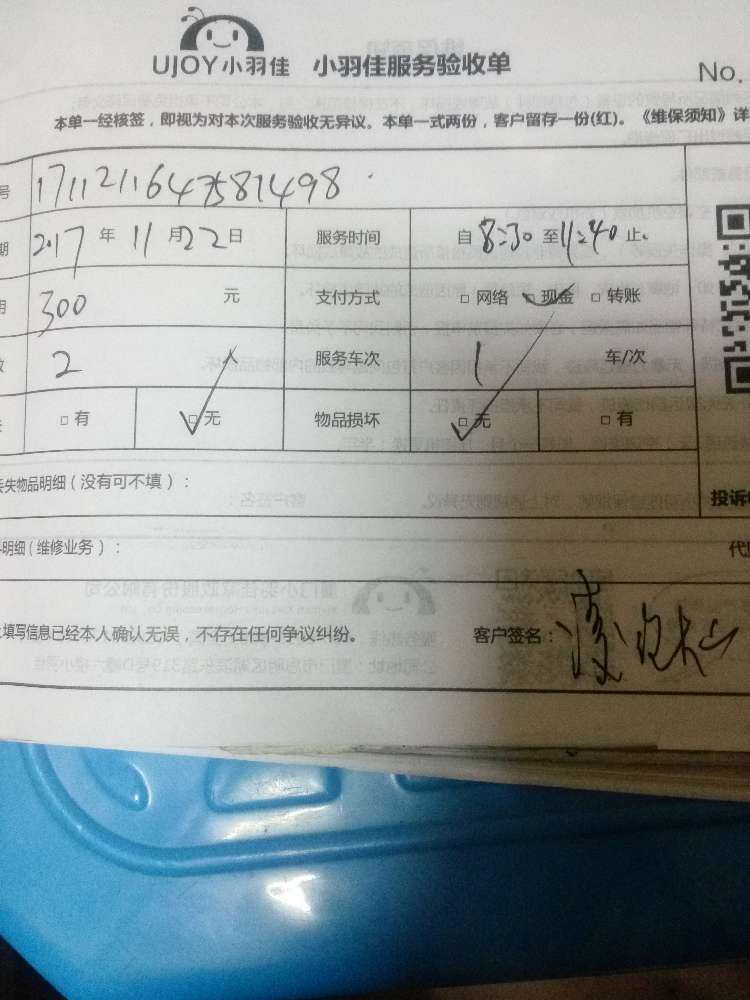 UJOY小羽佳 小羽佳服务验收单
No.
本单一经核签，即视为对本次服务验收无异议。本单一式两份，客户留存一份(红)。《维保须知》详
号 1711211647581498
期 2017 年 11 月 22 日 服务时间 自 8:30 至 11:40 止。
用 300 元 支付方式 □ 网络 □ 现金 □ 转账
数 2 服务车次 1 车/次
□ 有 □ 无 物品损坏 □ 无 □ 有
丢失物品明细（没有可不填）：
投诉
明细（维修业务）：
上填写信息已经本人确认无误，不存在任何争议纠纷。 客户签名：